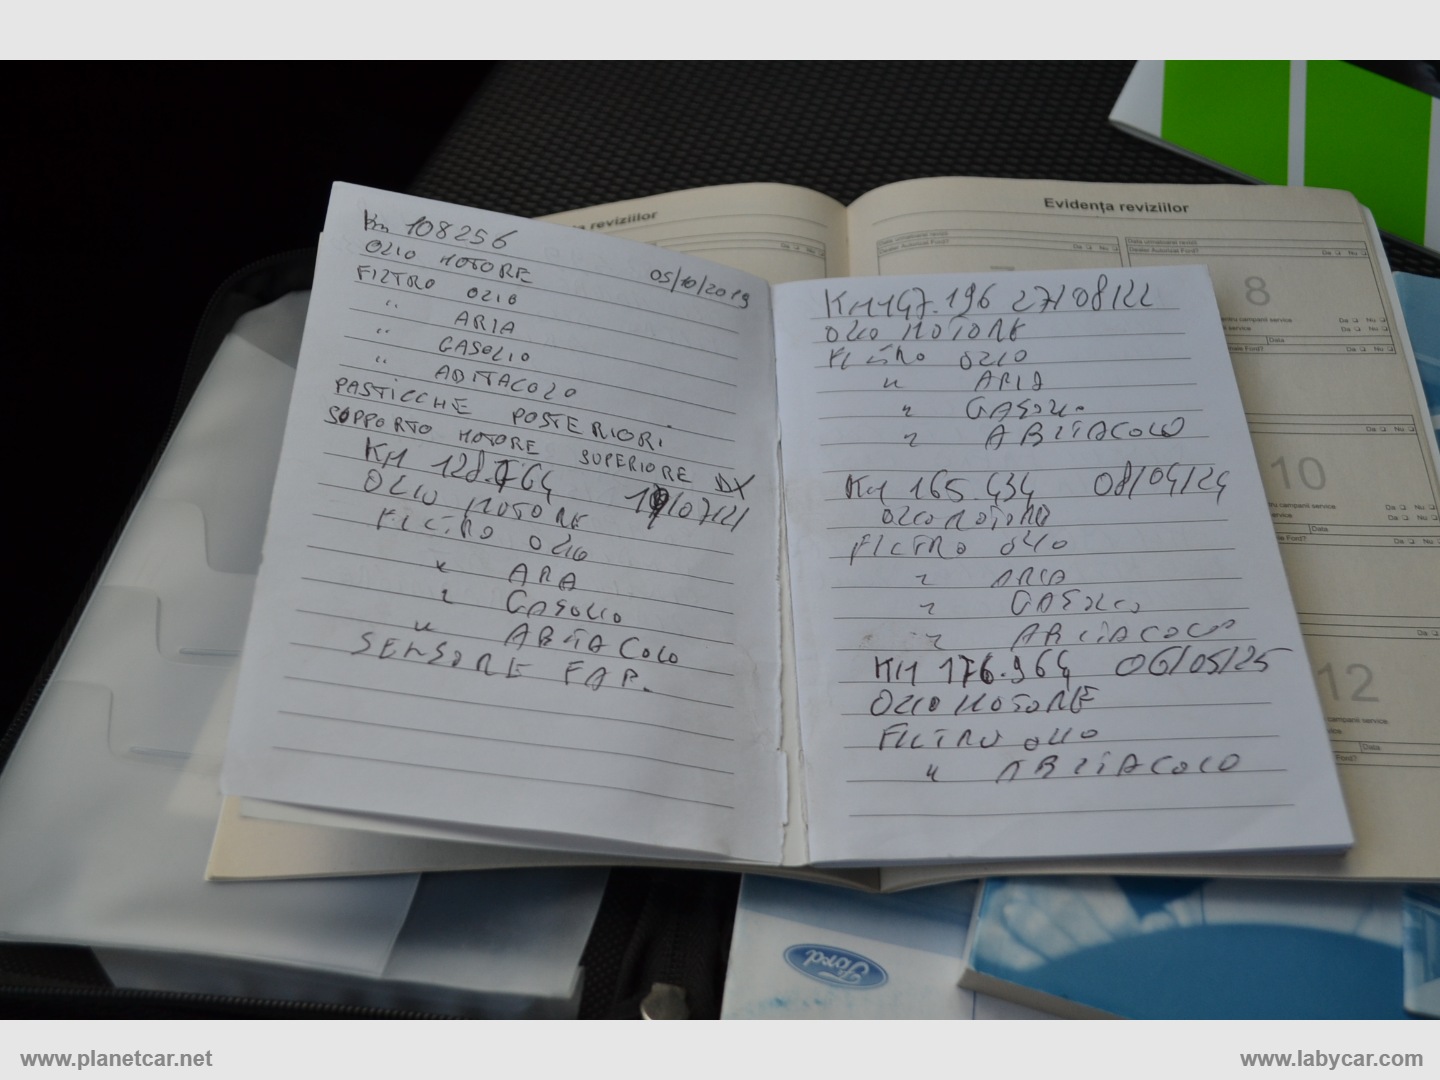 Km 108256
05/10/2019
OLIO MOTORE
FILTRO OLIO
" ARIA
" GASOLIO
" ABITACOLO
PASTICCHE POSTERIORI
SUPPORTO MOTORE SUPERIORE DX
KM 128.764 19/07/21
OLIO MOTORE
FILTRO OLIO
" ARIA
" GASOLIO
" ABITACOLO
SENSORE FAP.
KM 147.196 27/08/22
OLIO MOTORE
FILTRO OLIO
" ARIA
" GASOLIO
" ABITACOLO
KM 165.434 08/04/24
OLIO MOTORE
FILTRO OLIO
" ARIA
" GASOLIO
" ABITACOLO
KM 176.964 06/05/25
OLIO MOTORE
FILTRO OLIO
" ABITACOLO
reviziilor
Evidența reviziilor
8
10
12
Ford
www.planetcar.net
www.labycar.com